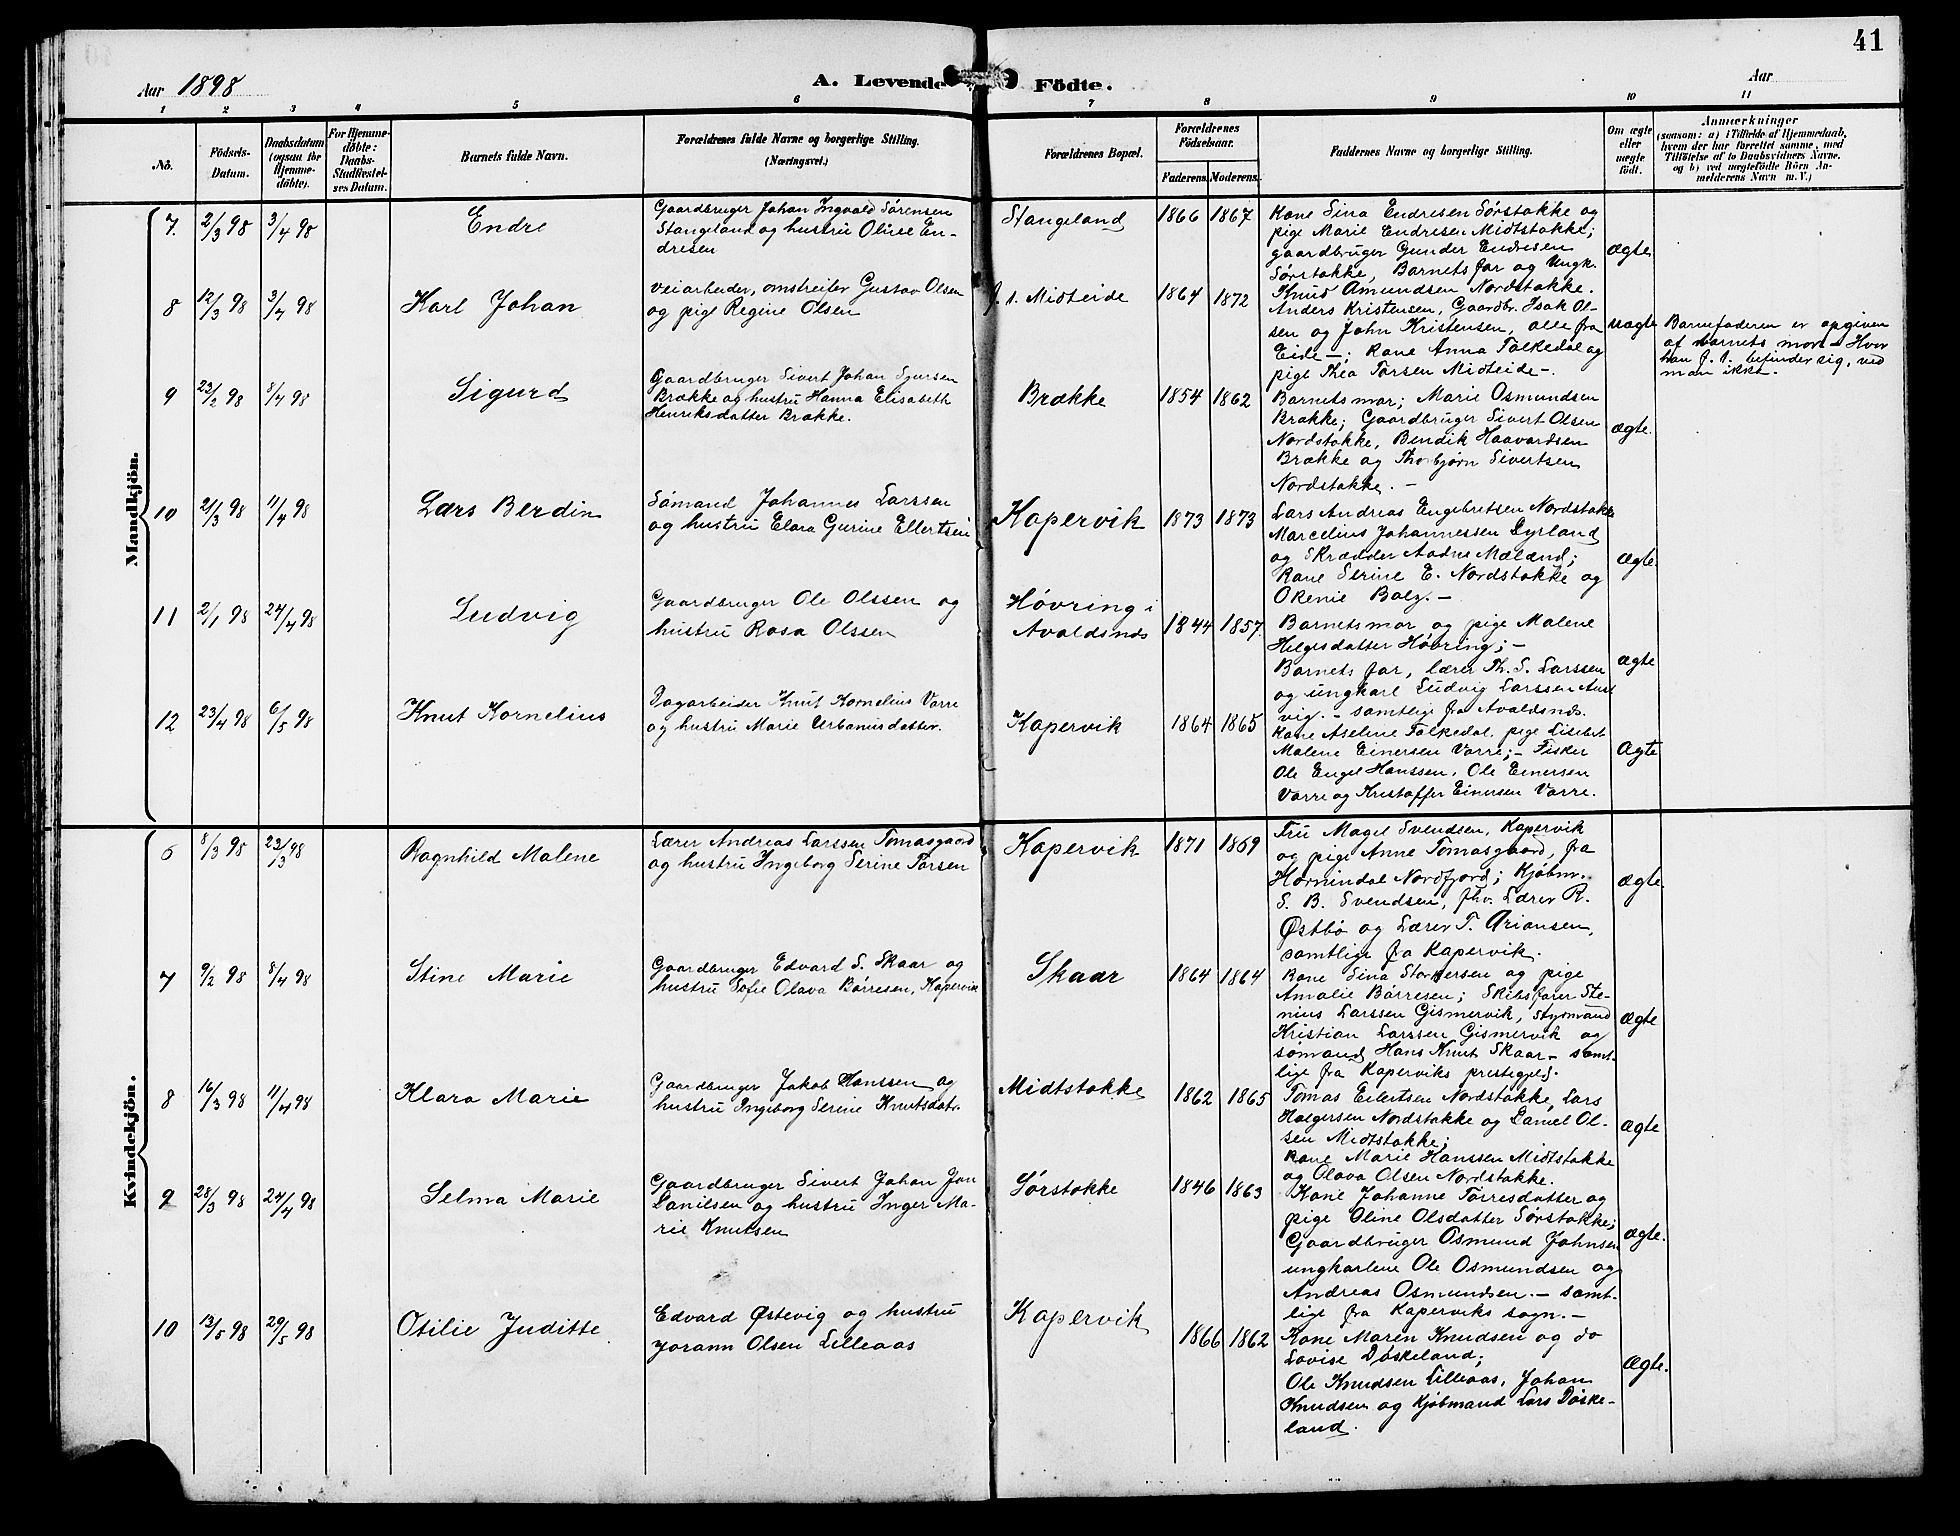 41
Aar 1898
A. Levende Födte.
Aar
1 2 3 4 5 6 7 8 9 10 11
No.
Födsels-Datum.
Daabsdatum (ogsaa for Hjemmedöbte).
For Hjemmedöbte: Daabs-Stadfæstelses Datum.
Barnets fulde Navn.
Forældrenes fulde Navne og borgerlige Stilling.
(Næringsvei.)
Forældrenes Bopæl.
Forældrenes Födselsaar.
Faderens. Moderens.
Faddernes Navne og borgerlige Stilling.
Om ægte eller uægte födt.
Anmærkninger
(saasom: a) i Tilfælde af Hjemmedaab, hvem der har forrettet samme, med Tilföielse af to Daabsvidners Navne, og b) ved uægtefödte Börn Anmelderens Navn m. V.)
Mandkjön.
7. 2/3 98 3/4 98 Endre
Gaardbruger Johan Ingvald Sørensen
Stangeland og hustru Oline En-
dresen
Stangeland 1866 1867
Kone Sina Endresen Sørstokke og
pige Marie Endresen Midtstokke;
gaardbruger Gunder Endresen
Sørstokke, Barnets far og Ungk.
Knud Amundsen Nordstokke.
ægte
8 12/3 98 3/4 98 Karl Johan
veiarbeider, omstreifer Gustav Olsen
og pige Regine Olsen
f. t. Midteide 1864 1872
Anders Kristensen, Gaardbr. Isak Ol-
sen og John Kristensen, alle fra
Eide -; Kone Anna Falkedal og
pige Thea Torsen Midteide -.
uægte
Barnefaderen er opgiven
af barnets mor - Hvor
han f. t. befinder sig, ved
man ikke.
9 23/2 98 8/4 98 Sigurd
Gaardbruger Sivert Johan Sjursen
Brække og hustru Hanna Elisabeth
Henriksdatter Brække.
Brække 1854 1862
Barnets mor; Marie Osmundsen
Brække; Gaardbruger Sivert Olsen
Nordstokke, Bendik Haavardsen
Brække og Thorbjørn Sivertsen
Nordstokke. -
ægte.
10 21/3 98 11/4 98 Lars Berdin
Sømand Johannes Larssen
og hustru Elara Gurine Ellertsen
Kopervik 1873 1873
Lars Andreas Engebretsen Nordstokke
Marcelius Johannessen Dyrland
og Skrædder Aadne Mæland;
Kone Serine E. Nordstokke og
Okenie Bolg. -
ægte.
11 2/1 98 24/4 98 Ludvig
Gaardbruger Ole Olssen og
hustru Rosa Olssen
Høvring i
Avaldsnes
1844 1857.
Barnets mor og pige Malene
Helgesdatter Høvring; -
Barnets far, lærer Th. S. Larssen
og ungkarl Ludvig Larssen
vig. - samtlige fra Avaldsnes.
ægte
12 23/4 98 6/5 98 Knut Kornelius
Dagarbeider Knut Kornelius Vorre
og hustru Marie Urbanusdatter.
Kopervik 1864 1865
Kone Aseline Falkedal, pige Lisebet
Malene Einersen Vorre; - Fisker
Ole Engel Hanssen, Ole Einersen
Vorre og Kristoffer Einersen Vorre.
Ægte
Kvindekjön.
6 8/3 98 23/3 98 Ragnhild Malene
Lærer Andreas Larssen Tomasgaard
og hustru Ingeborg Serine Torsen
Kopervik 1871 1869
Fru Magel Svendsen, Kopervik
og pige Anne Tomasgaard, fra
Hornindal Nordfjord; Kjøbm.
S. B. Svendsen, fhv. Lærer R.
Østbø og Lærer T. Ariansen,
samtlige fra Kopervik.
ægte.
7 9/2 98 8/4 98 Stine Marie
Gaardbruger Edvard S. Skaar og
hustru Sofie Olava Børresen, Kopervik
Skaar 1864 1864
Kone Sina Storkersen og pige
Amalie Børresen; Skibsfører Ste-
nius Larssen Gismervik, Styrmand
Kristian Larssen Gismervik og
sømand Hans Knut Skaar - samt-
lige fra Koperviks prestegjeld.
ægte
8 16/3 98 11/4 98 Klara Marie
Gaardbruger Jakob Hanssen og
hustru Ingeborg Serine Knutsdat.
Midtstokke 1862 1865
Tomas Eilertsen Nordstokke, Lars
Holgersen Nordstokke og Daniel Ol-
sen Midtstokke;
Kone Marie Hanssen Midtstokke
og Olava Olsen Nordstokke.
ægte
9 28/3 98 24/4 98 Selma Marie
Gaardbruger Sivert Johan Jon
Danilsen og hustru Inger Ma-
rie Knutsen
Sørstokke 1846 1863
Kone Johanne Torresdatter og
pige Oline Olsdatter Sørstokke;
Gaardbruger Osmund Johnsen
ungkarlene Ole Osmundsen og
Andreas Osmundsen. - samt-
lige fra Koperviks sogn. -
ægte.
10 13/5 98 29/5 98 Otilie Juditte
Edvard Østevig og hustru
Jorann Olsen Lilleaas
Kopervik
1866 1862
Kone Maren Knudsen og do
Lovise Døskeland;
Ole Knudsen Lilleaas, Johan
Knudsen og Kjøbmand Lars Døske-
land.
Ægte.